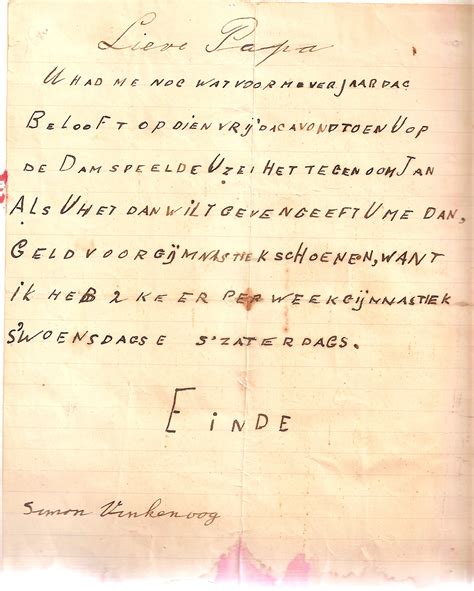 Lieve Papa
U HAD ME NOG WAT VOOR M'OVERJAARDAG
BELOOFT OP DIEN VRIJDAGAVOND TOEN U OP
DE DAM SPEELDE U ZEI HET TEGEN OOM JAN
ALS U HET DAN WILT GEVEN GEEFT U ME DAN,
GELD VOOR GIJMNASTIEKSCHOENEN, WANT
IK HEB 2 KEER PER WEEK GIJNNASTIEK
S'WOENSDAGS E S'ZATERDAGS.
EINDE
Simon Vinkenoog